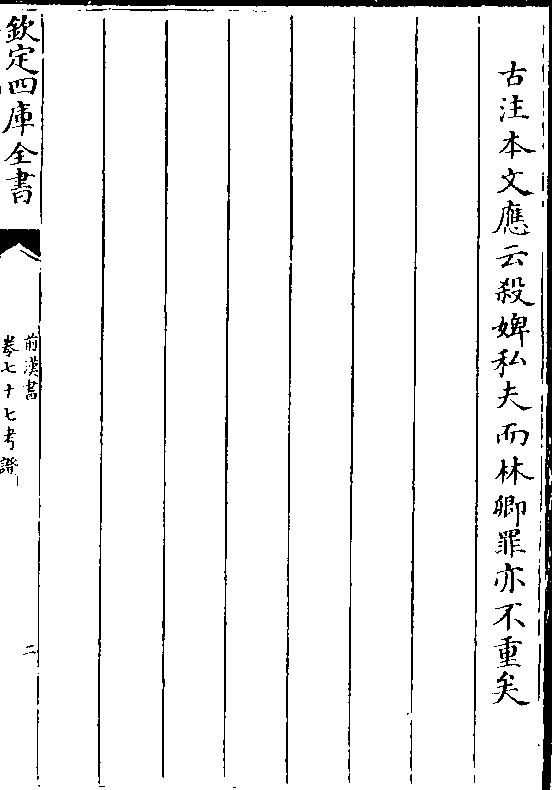 古注本文應云殺婢私夫而林卿罪亦不重矣
欽定四庫全書
前漢書
卷七十七考證
二